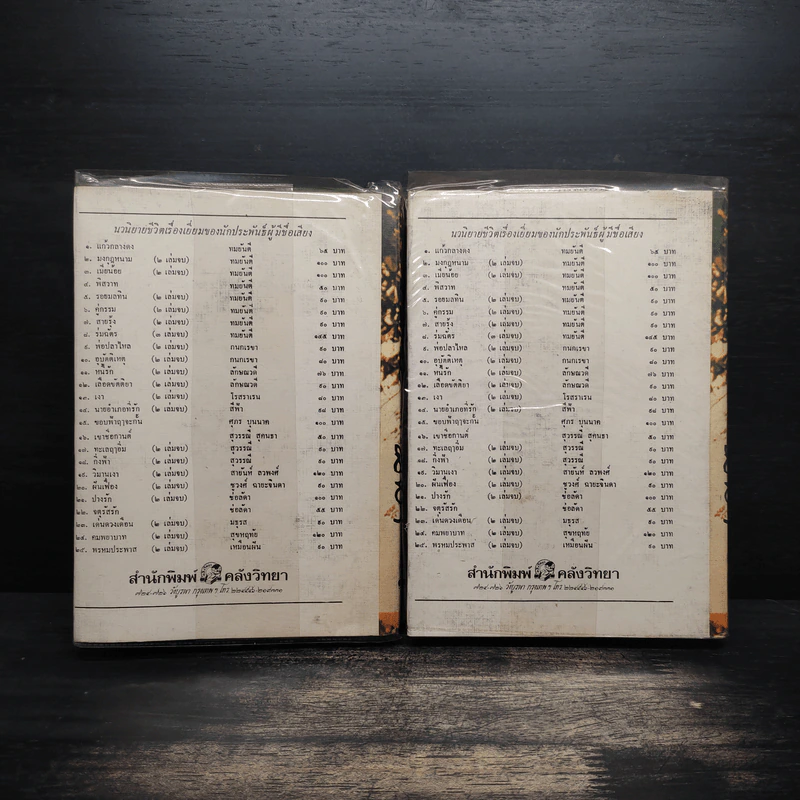 นวนิยายชีวิตเรื่องเยี่ยมของนักประพันธ์ผู้มีชื่อเสียง
๑. แก้วกลางดง ทมยันตี ๖๕ บาท
๒. มงกุฎหนาม (๒ เล่มจบ) ทมยันตี ๑๐๐ บาท
๓. เมียน้อย (๒ เล่มจบ) ทมยันตี ๑๐๐ บาท
๔. พิศวาท ทมยันตี ๕๐ บาท
๕. รอยมลทิน (๒ เล่มจบ) ทมยันตี ๙๐ บาท
๖. คู่กรรม (๒ เล่มจบ) ทมยันตี ๙๐ บาท
๗. สายรุ้ง (๒ เล่มจบ) ทมยันตี ๙๐ บาท
๘. ร่มฉัตร (๓ เล่มจบ) ทมยันตี ๑๔๕ บาท
๙. พ่อปลาไหล (๒ เล่มจบ) กนกเรขา ๙๐ บาท
๑๐. อุบัติเหตุ (๒ เล่มจบ) กนกเรขา ๘๐ บาท
๑๑. หนี้รัก (๒ เล่มจบ) ลักษณวดี ๗๖ บาท
๑๒. เลือดขัตติยา (๒ เล่มจบ) ลักษณวดี ๙๐ บาท
๑๓. เงา (๒ เล่มจบ) โรสลาเรน ๘๐ บาท
๑๔. นายอำเภอที่รัก (๒ เล่มจบ) สีฟ้า ๘๔ บาท
๑๕. ขอบฟ้าฤๅจะกั้น ศุภร บุนนาค ๑๐๐ บาท
๑๖. เขาชื่อกานต์ สุวรรณี สุคนธา ๕๐ บาท
๑๗. ทะเลฤๅอิ่ม (๒ เล่มจบ) สุวรรณี ๙๐ บาท
๑๘. กิ่งฟ้า (๒ เล่มจบ) สุวรรณี ๙๐ บาท
๑๙. วิมานเงา (๒ เล่มจบ) สายันห์ ลวพงศ์ ๑๒๐ บาท
๒๐. ผันเฟือง (๒ เล่มจบ) ชูวงศ์ ฉายะจินดา ๙๐ บาท
๒๑. ปางรัก (๒ เล่มจบ) ช่อลัดา ๑๐๐ บาท
๒๒. จตุรัสรัก ช่อลัดา ๕๕ บาท
๒๓. เด่นดวงเดือน (๒ เล่มจบ) มธุรส ๙๐ บาท
๒๔. คมพยาบาท (๒ เล่มจบ) สุขหฤทัย ๑๒๐ บาท
๒๕. พรหมประพาส (๒ เล่มจบ) เหมือนฝัน ๙๐ บาท
สำนักพิมพ์ คลังวิทยา
๗๒๔-๗๒๖ วังบูรพา กรุงเทพ ฯ
นวนิยายชีวิตเรื่องเยี่ยมของนักประพันธ์ผู้มีชื่อเสียง
๑. แก้วกลางดง ทมยันตี ๖๕ บาท
๒. มงกุฎหนาม (๒ เล่มจบ) ทมยันตี ๑๐๐ บาท
๓. เมียน้อย (๒ เล่มจบ) ทมยันตี ๑๐๐ บาท
๔. พิศวาท ทมยันตี ๕๐ บาท
๕. รอยมลทิน (๒ เล่มจบ) ทมยันตี ๙๐ บาท
๖. คู่กรรม (๒ เล่มจบ) ทมยันตี ๙๐ บาท
๗. สายรุ้ง (๒ เล่มจบ) ทมยันตี ๙๐ บาท
๘. ร่มฉัตร (๓ เล่มจบ) ทมยันตี ๑๔๕ บาท
๙. พ่อปลาไหล (๒ เล่มจบ) กนกเรขา ๙๐ บาท
๑๐. อุบัติเหตุ (๒ เล่มจบ) กนกเรขา ๘๐ บาท
๑๑. หนี้รัก (๒ เล่มจบ) ลักษณวดี ๗๖ บาท
๑๒. เลือดขัตติยา (๒ เล่มจบ) ลักษณวดี ๙๐ บาท
๑๓. เงา (๒ เล่มจบ) โรสลาเรน ๘๐ บาท
๑๔. นายอำเภอที่รัก (๒ เล่มจบ) สีฟ้า ๘๔ บาท
๑๕. ขอบฟ้าฤๅจะกั้น ศุภร บุนนาค ๑๐๐ บาท
๑๖. เขาชื่อกานต์ สุวรรณี สุคนธา ๕๐ บาท
๑๗. ทะเลฤๅอิ่ม (๒ เล่มจบ) สุวรรณี ๙๐ บาท
๑๘. กิ่งฟ้า (๒ เล่มจบ) สุวรรณี ๙๐ บาท
๑๙. วิมานเงา (๒ เล่มจบ) สายันห์ ลวพงศ์ ๑๒๐ บาท
๒๐. ผันเฟือง (๒ เล่มจบ) ชูวงศ์ ฉายะจินดา ๙๐ บาท
๒๑. ปางรัก (๒ เล่มจบ) ช่อลัดา ๑๐๐ บาท
๒๒. จตุรัสรัก ช่อลัดา ๕๕ บาท
๒๓. เด่นดวงเดือน (๒ เล่มจบ) มธุรส ๙๐ บาท
๒๔. คมพยาบาท (๒ เล่มจบ) สุขหฤทัย ๑๒๐ บาท
๒๕. พรหมประพาส (๒ เล่มจบ) เหมือนฝัน ๙๐ บาท
สำนักพิมพ์ คลังวิทยา
๗๒๔-๗๒๖ วังบูรพา กรุงเทพ ฯ